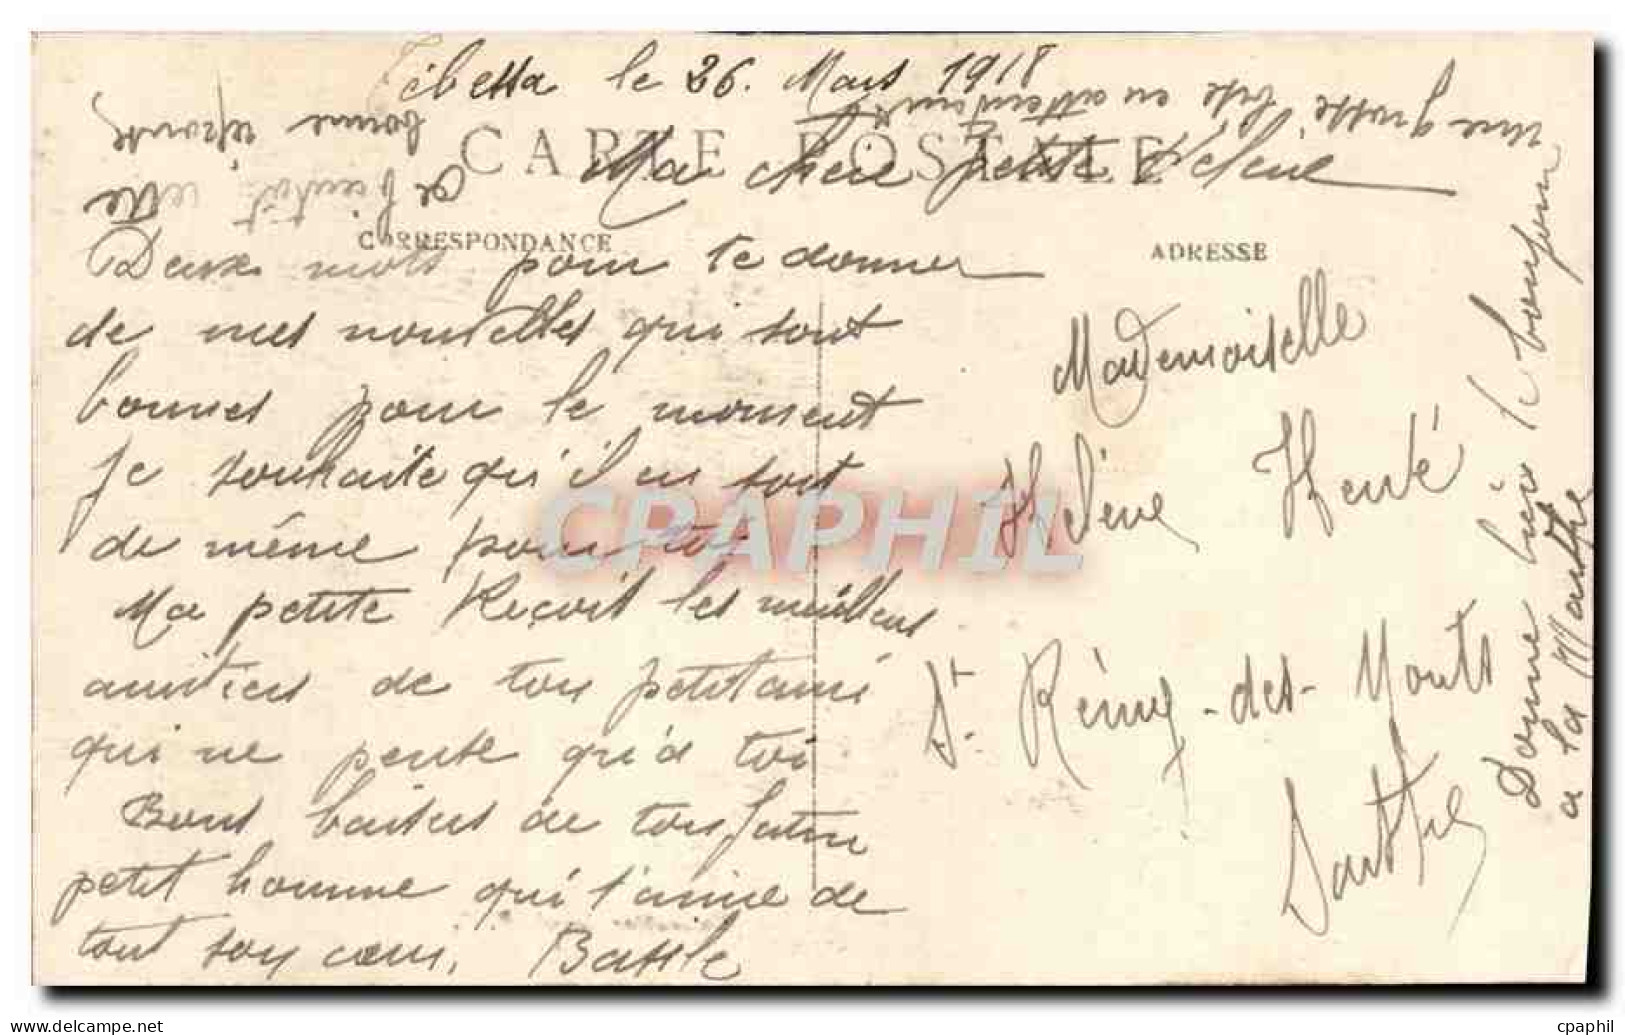 Tébessa le 26. Mars 1918
CARTE POSTALE
Ma cheie petite Hélène
CORRESPONDANCE
Deux mots pour te donner
de mes nouvelles qui sont
bonnes pour le moment
Je souhaite qu'il en soit
de même pour toi
Ma petite Reçoit les meilleurs
amitiers de ton petit ami
qui ne pense qu'a toi
Bons baisers de ton futur
petit homme qui t'aime de
tout son cœur.
ADRESSE
Mademoiselle
Hélène
St. Rémy-des-Monts
Sarthe
Donne bien le bonjour
a la Marthe
une grosse bise en attendant
bonne réponse
a bientôt
CPAPHIL
www.delcampe.net
cpaphil